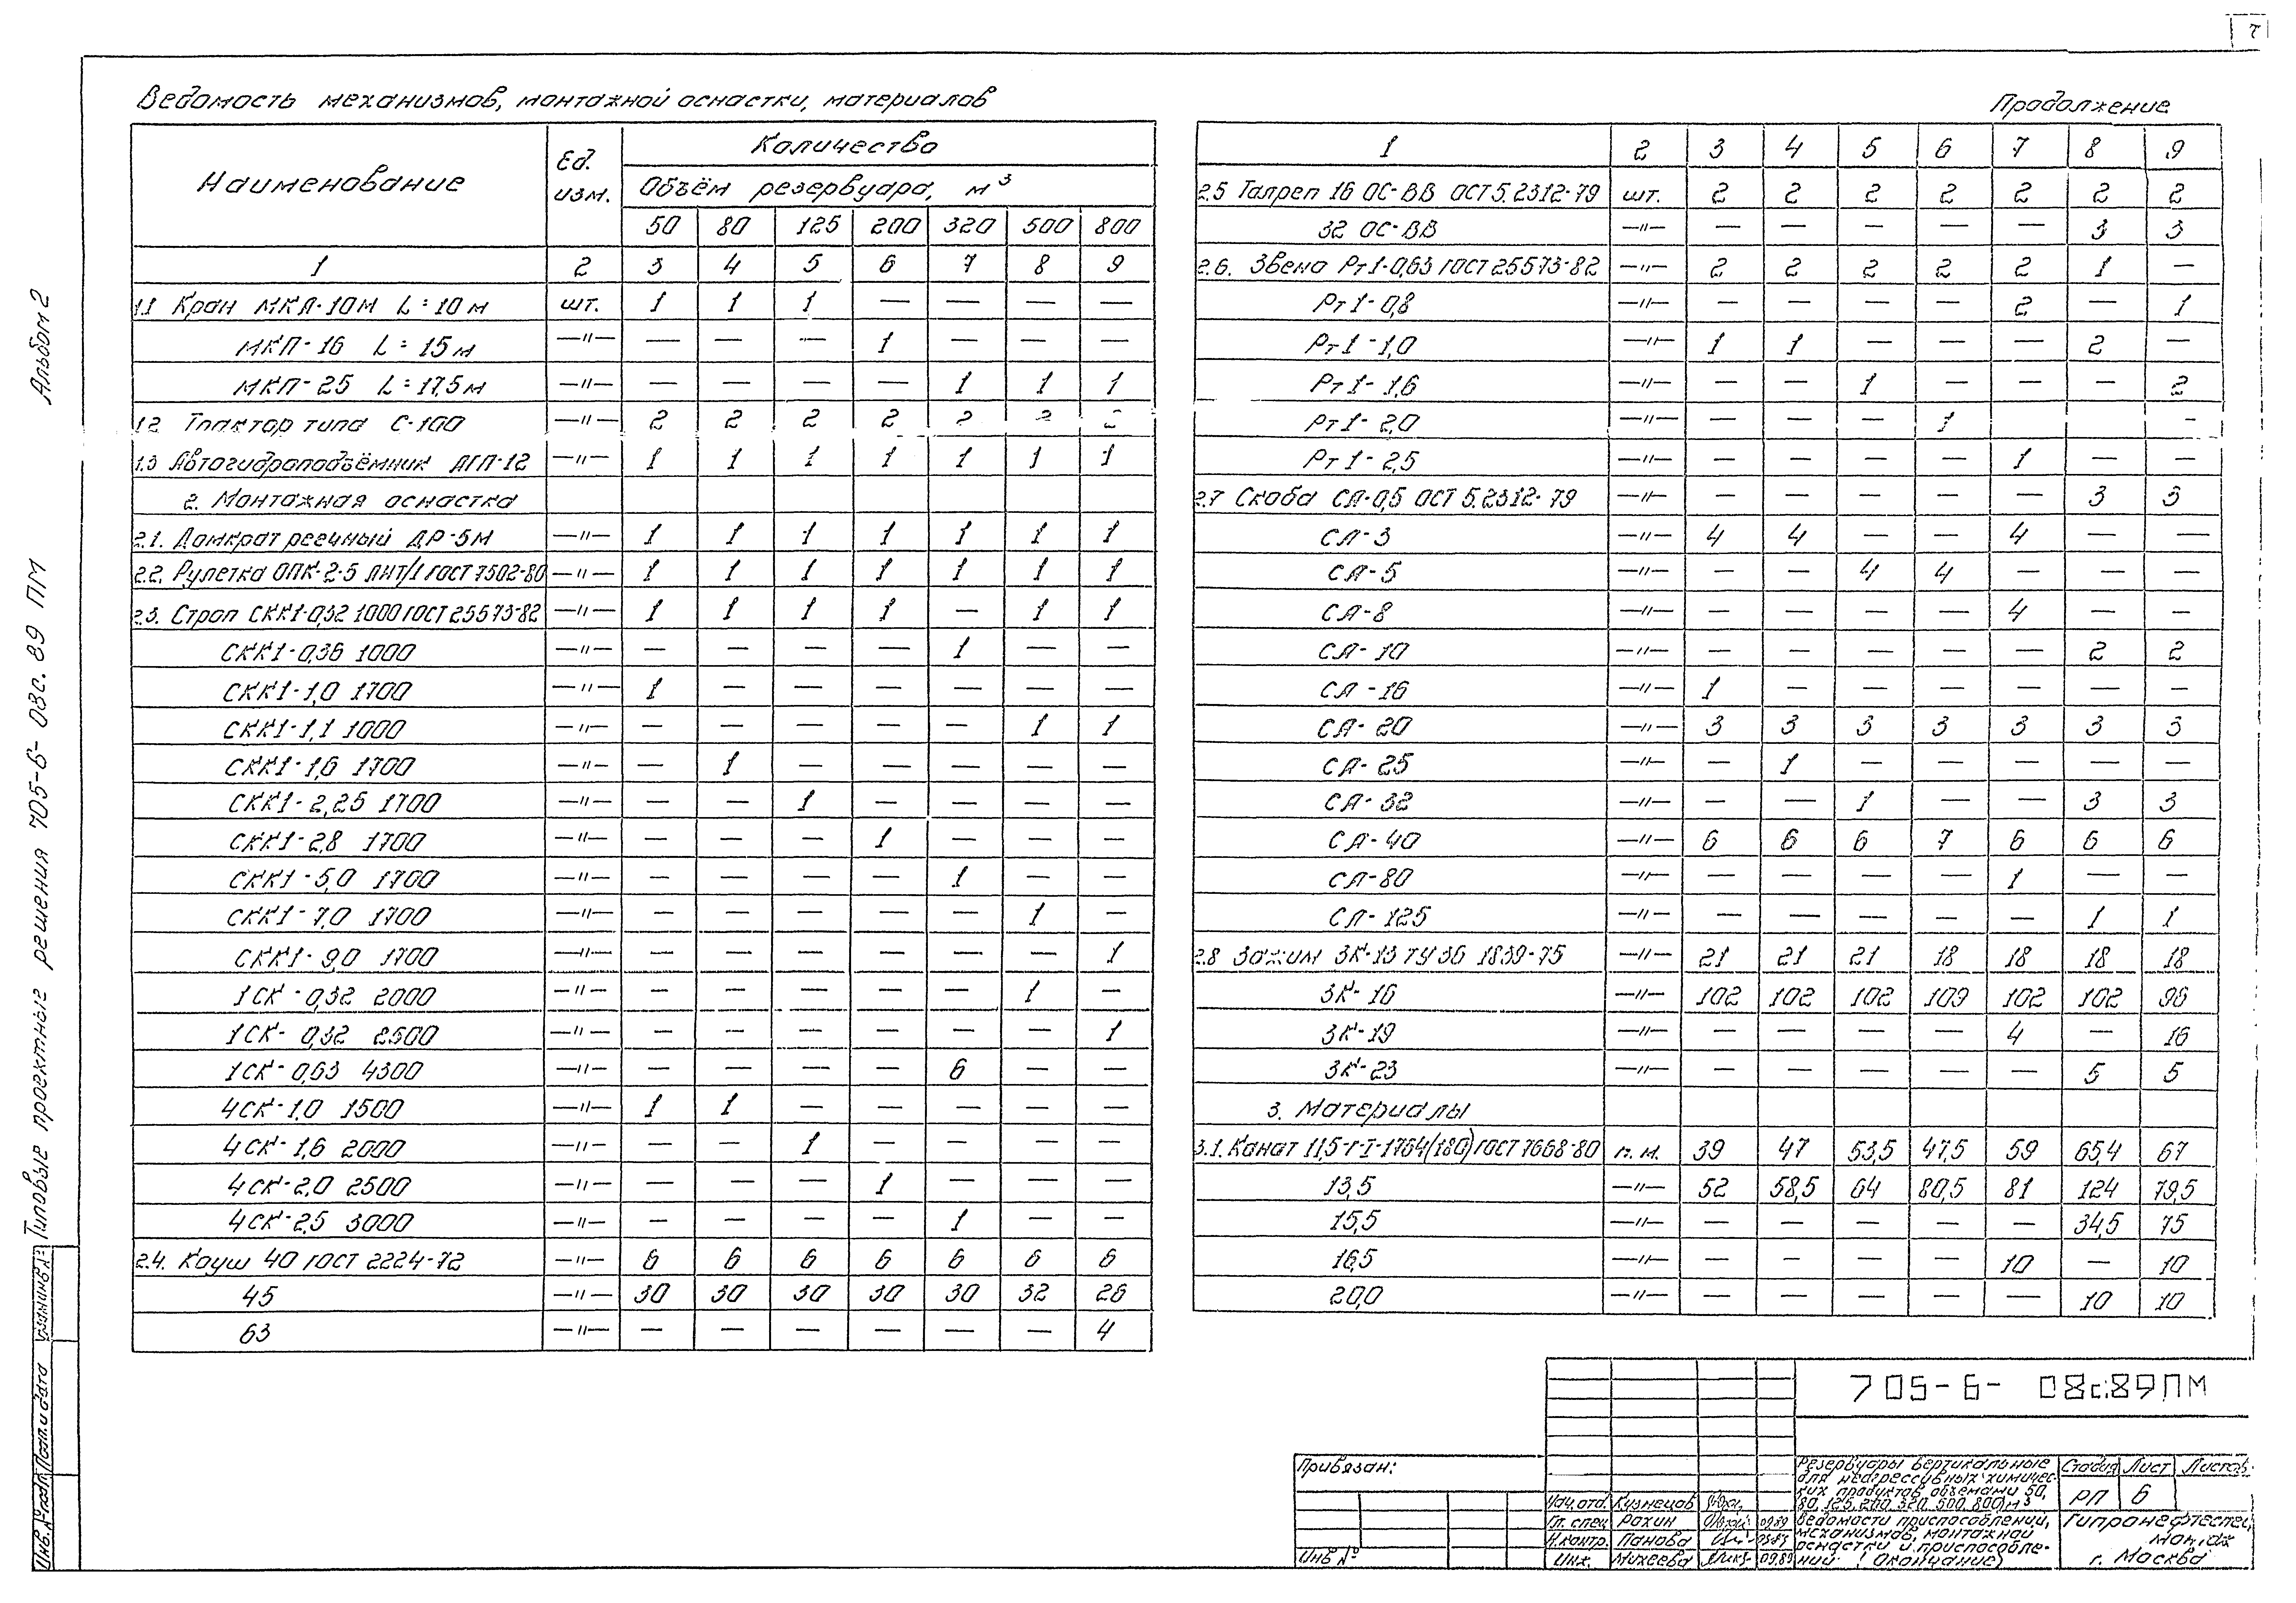 7
Ведомость механизмов, монтажной оснастки, материалов
Наименование | Ед. изм. | Количество
Объём резервуара, м³
50 | 80 | 125 | 200 | 320 | 500 | 800
1 | 2 | 3 | 4 | 5 | 6 | 7 | 8 | 9
1.1 Кран МКА-10М L=10м | шт. | 1 | 1 | 1 | — | — | — | —
МКП-16 L=15м | —"— | — | — | — | 1 | — | — | —
МКП-25 L=17,5м | —"— | — | — | — | — | 1 | 1 | 1
1.2 Трактор типа С-100 | —"— | 2 | 2 | 2 | 2 | 2 | 2 | 2
1.3 Автогидроподъёмник АГП-12 | —"— | 1 | 1 | 1 | 1 | 1 | 1 | 1
2. Монтажная оснастка
2.1. Домкрат реечный ДР-5М | —"— | 1 | 1 | 1 | 1 | 1 | 1 | 1
2.2. Рулетка ОПК-2-5 АНТ/1 ГОСТ 7502-80 | —"— | 1 | 1 | 1 | 1 | 1 | 1 | 1
2.3. Строп СКК1-0,32 1000 ГОСТ 25573-82 | —"— | 1 | 1 | 1 | 1 | — | 1 | 1
СКК1-0,36 1000 | —"— | — | — | — | — | 1 | — | —
СКК1-1,0 1700 | —"— | 1 | — | — | — | — | — | —
СКК1-1,1 1000 | —"— | — | — | — | — | — | 1 | 1
СКК1-1,6 1700 | —"— | — | 1 | — | — | — | — | —
СКК1-2,25 1700 | —"— | — | — | 1 | — | — | — | —
СКК1-2,8 1700 | —"— | — | — | — | 1 | — | — | —
СКК1-5,0 1700 | —"— | — | — | — | — | 1 | — | —
СКК1-7,0 1700 | —"— | — | — | — | — | — | 1 | —
СКК1-9,0 1700 | —"— | — | — | — | — | — | — | 1
1СК-0,32 2000 | —"— | — | — | — | — | — | 1 | —
1СК-0,32 2500 | —"— | — | — | — | — | — | — | 1
1СК-0,63 4300 | —"— | — | — | — | — | 6 | — | —
4СК-1,0 1500 | —"— | 1 | 1 | — | — | — | — | —
4СК-1,6 2000 | —"— | — | — | 1 | — | — | — | —
4СК-2,0 2500 | —"— | — | — | — | 1 | — | — | —
4СК-2,5 3000 | —"— | — | — | — | — | 1 | — | —
2.4. Коуш 40 ГОСТ 2224-72 | —"— | 6 | 6 | 6 | 6 | 6 | 6 | 6
45 | —"— | 30 | 30 | 30 | 30 | 30 | 32 | 26
63 | —"— | — | — | — | — | — | — | 4
Продолжение
1 | 2 | 3 | 4 | 5 | 6 | 7 | 8 | 9
2.5 Талреп 16 ОС-ВВ ОСТ 5.2312-79 | шт. | 2 | 2 | 2 | 2 | 2 | 2 | 2
32 ОС-ВВ | —"— | — | — | — | — | — | 3 | 3
2.6. Звено Рт1-0,63 ГОСТ 25573-82 | —"— | 2 | 2 | 2 | 2 | 2 | 1 | —
Рт1-0,8 | —"— | — | — | — | — | 2 | — | 1
Рт1-1,0 | —"— | 1 | 1 | — | — | — | 2 | —
Рт1-1,6 | —"— | — | — | 1 | — | — | — | 2
Рт1-2,0 | —"— | — | — | — | 1 | | | —
Рт1-2,5 | —"— | — | — | — | — | 1 | — | —
2.7 Скоба СА-0,5 ОСТ 5.2312-79 | —"— | — | — | — | — | — | 3 | 3
СА-3 | —"— | 4 | 4 | — | — | 4 | — | —
СА-5 | —"— | — | — | 4 | 4 | — | — | —
СА-8 | —"— | — | — | — | — | 4 | — | —
СА-10 | —"— | — | — | — | — | — | 2 | 2
СА-16 | —"— | 1 | — | — | — | — | — | —
СА-20 | —"— | 3 | 3 | 3 | 3 | 3 | 3 | 3
СА-25 | —"— | — | 1 | — | — | — | — | —
СА-32 | —"— | — | — | 1 | — | — | 3 | 3
СА-40 | —"— | 6 | 6 | 6 | 7 | 6 | 6 | 6
СА-80 | —"— | — | — | — | — | 1 | — | —
СА-125 | —"— | — | — | — | — | — | 1 | 1
2.8 Зажим ЗК-13 ТУ 36 1839-75 | —"— | 21 | 21 | 21 | 18 | 18 | 18 | 18
ЗК-16 | —"— | 102 | 102 | 102 | 109 | 102 | 102 | 96
ЗК-19 | —"— | — | — | — | — | 4 | — | 16
ЗК-23 | —"— | — | — | — | — | — | 5 | 5
3. Материалы
3.1. Канат 11,5-Г-I-1764(180) ГОСТ 7668-80 | п.м. | 39 | 47 | 53,5 | 47,5 | 59 | 65,4 | 67
13,5 | —"— | 52 | 58,5 | 64 | 80,5 | 81 | 124 | 79,5
15,5 | —"— | — | — | — | — | — | 34,5 | 75
16,5 | —"— | — | — | — | — | 10 | — | 10
20,0 | —"— | — | — | — | — | — | 10 | 10
Альбом 2
Типовые проектные решения 705-6-03с.89 ПМ
Взам.инв.№
Подп. и дата
Инв.№ подл.
Привязан:
Инв №
Нач.отд. Кузнецов
Гл. спец Рахин 09.89
Н.контр. Панова
Инж. Михеева 09.89
705-6- 08с.89ПМ
Резервуары вертикальные
для неагрессивных химичес-
ких продуктов объемами 50,
80, 125, 200, 320, 500, 800 м³
Стадия Лист Листов
РП 6
Ведомости приспособлений,
механизмов, монтажной
оснастки и приспособле-
ний (Окончание)
Гипронефтеспец
монтаж
г. Москва